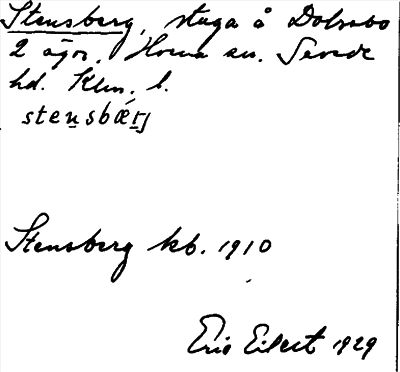 Stensberg, stuga å Dolsebo
2 ägor. Horna sn. Sevede
hd. Klm. l.
stensbǽrj
Stensberg kb. 1910
Eric Eilert 1929